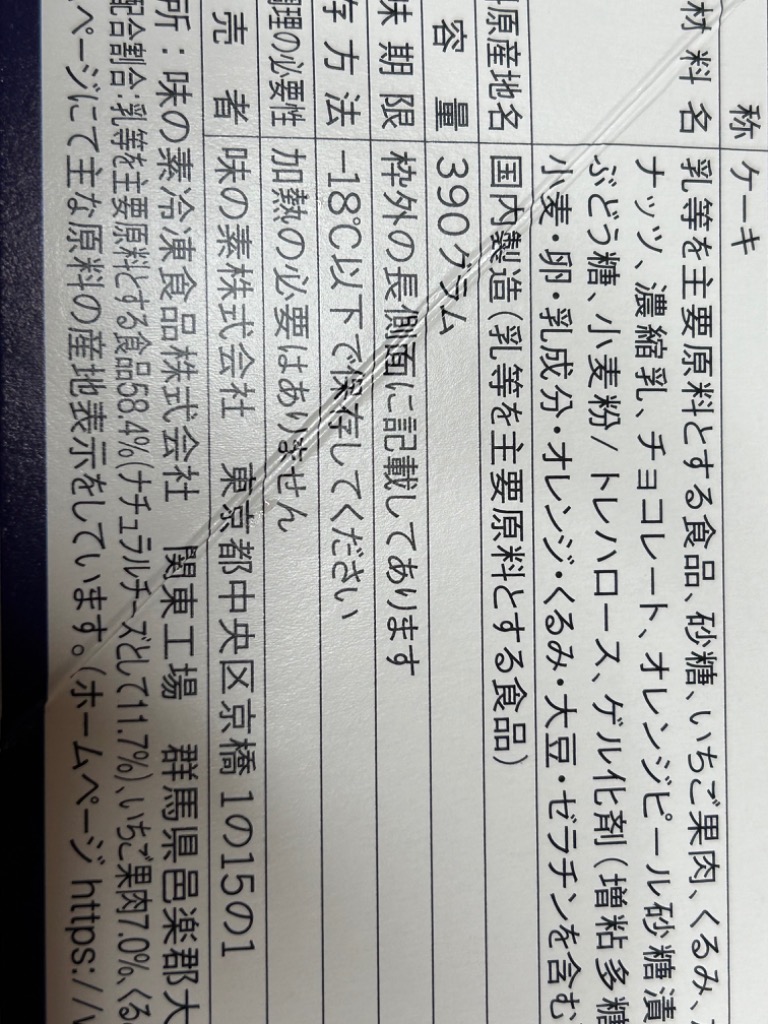 称 ケーキ
材料名 乳等を主要原料とする食品、砂糖、いちご果肉、くるみ、
ナッツ、濃縮乳、チョコレート、オレンジピール砂糖漬
ぶどう糖、小麦粉/トレハロース、ゲル化剤(増粘多糖
小麦・卵・乳成分・オレンジ・くるみ・大豆・ゼラチンを含む
原産地名 国内製造(乳等を主要原料とする食品)
容量 390グラム
味期限 枠外の長側面に記載してあります
存方法 -18℃以下で保存してください
調理の必要性 加熱の必要はありません
売者 味の素株式会社 東京都中央区京橋1の15の1
所:味の素冷凍食品株式会社 関東工場 群馬県邑楽郡大
配合割合:乳等を主要原料とする食品58.4%(ナチュラルチーズとして11.7%)、いちご果肉7.0%、くる
ページにて主な原料の産地表示をしています。(ホームページ https://